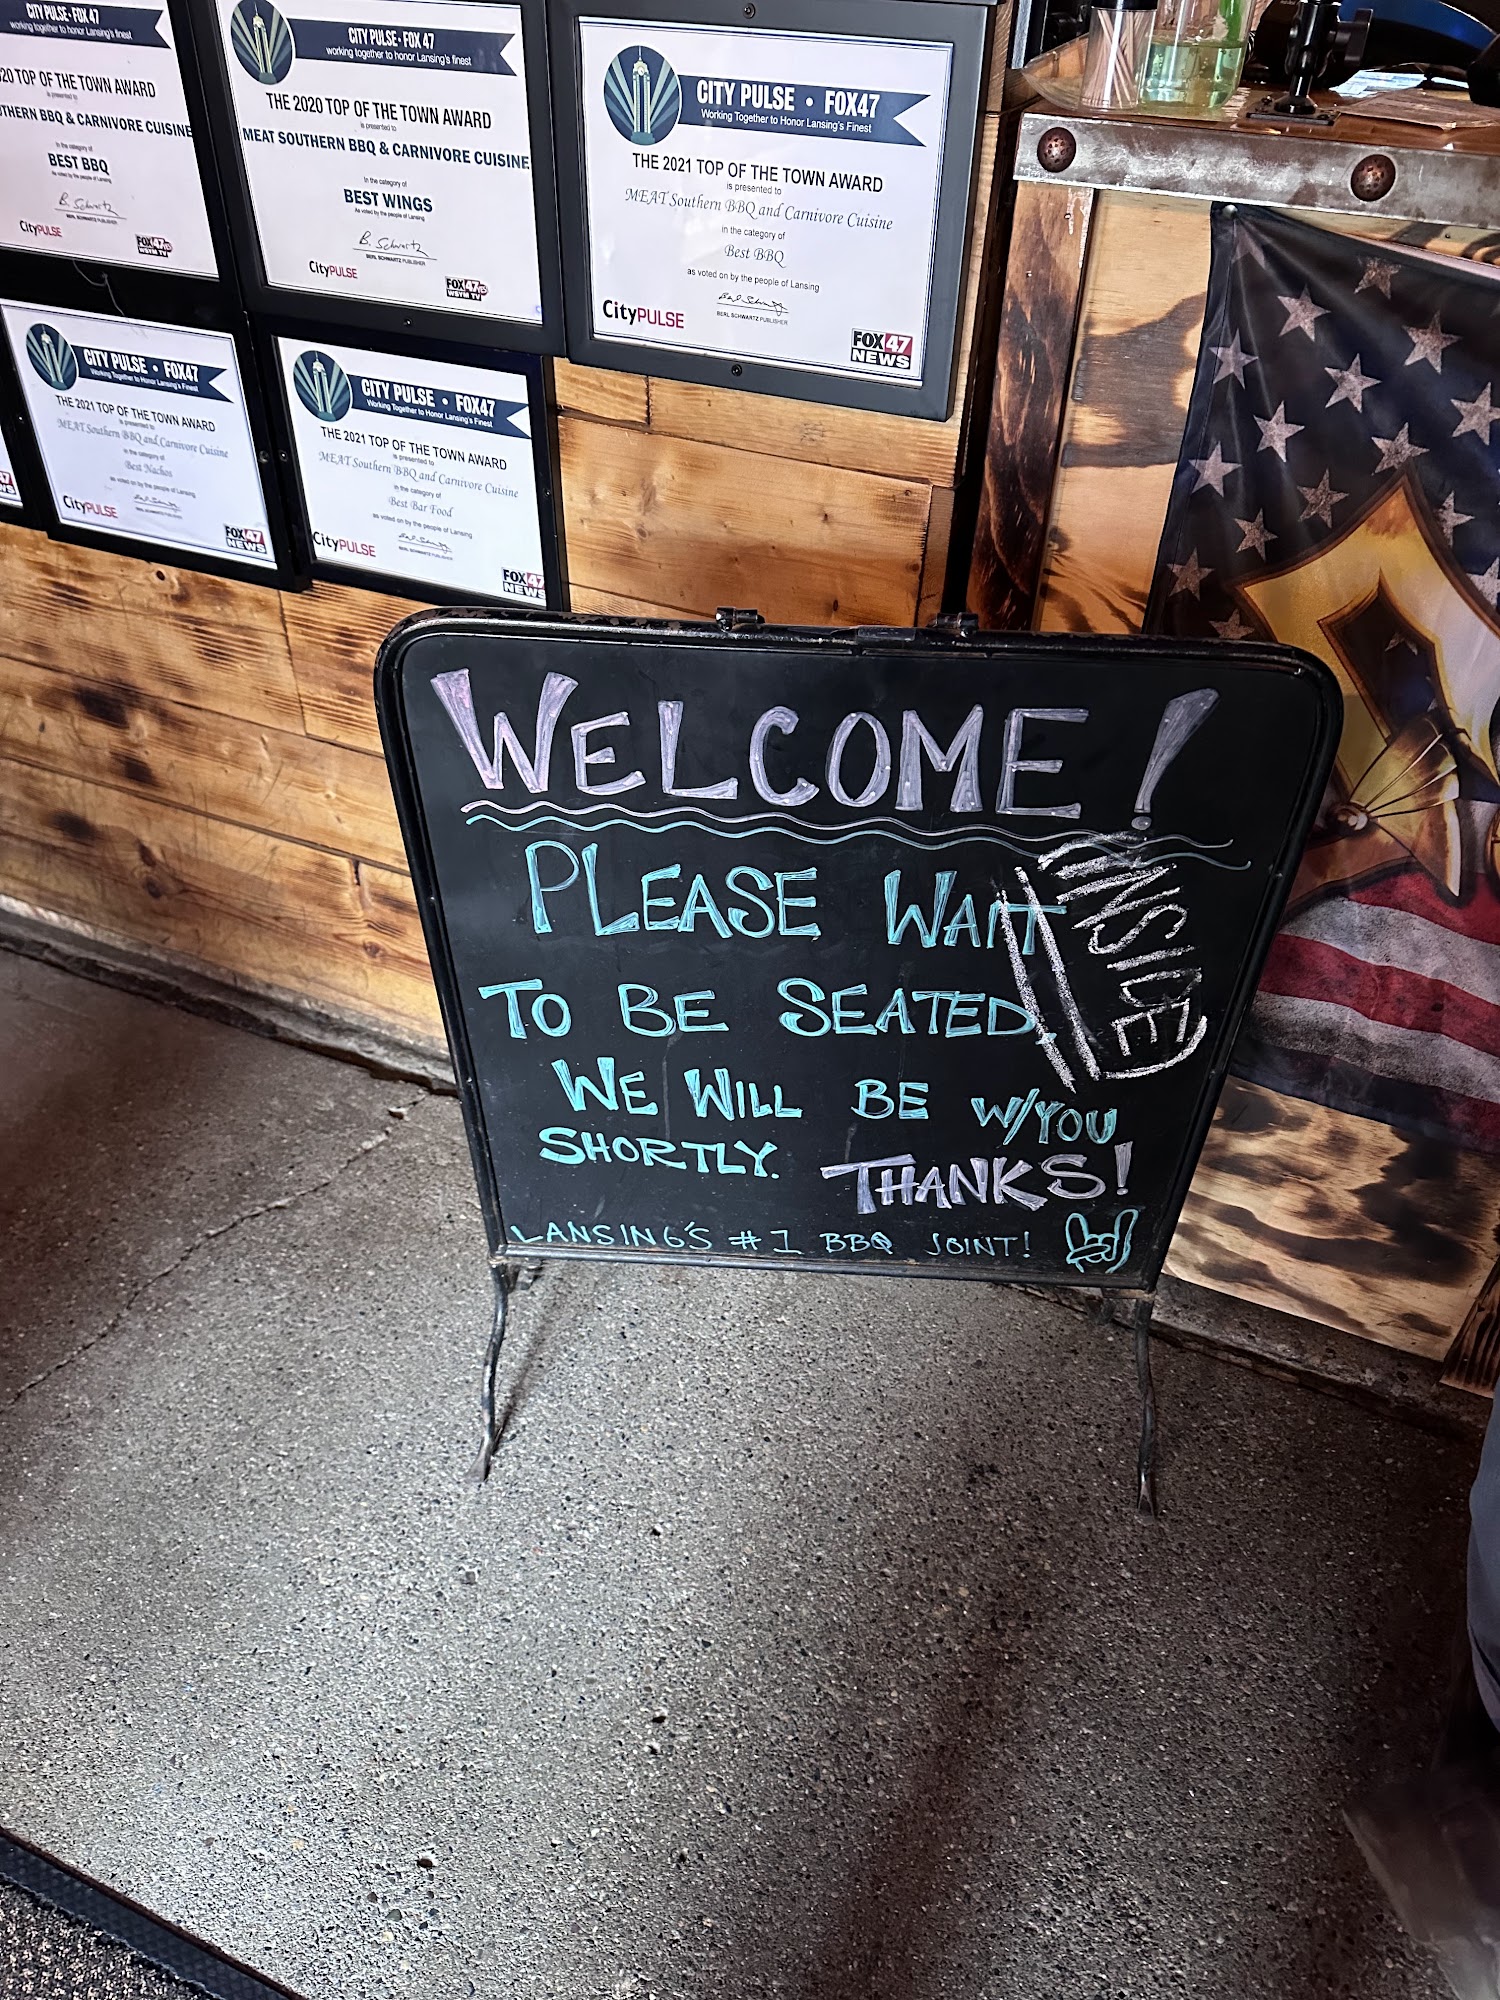 CITY PULSE · FOX 47
working together to honor Lansing's finest
20 TOP OF THE TOWN AWARD
is presented to
THERN BBQ & CARNIVORE CUISINE
in the category of
BEST BBQ
As voted by the people of Lansing
B. Schwartz
BERL SCHWARTZ PUBLISHER
CityPULSE
FOX47
WSYM TV
CITY PULSE · FOX 47
working together to honor Lansing's finest
THE 2020 TOP OF THE TOWN AWARD
is presented to
MEAT SOUTHERN BBQ & CARNIVORE CUISINE
in the category of
BEST WINGS
As voted by the people of Lansing
B. Schwartz
BERL SCHWARTZ PUBLISHER
CityPULSE
FOX47
WSYM TV
CITY PULSE • FOX47
Working Together to Honor Lansing's Finest
THE 2021 TOP OF THE TOWN AWARD
is presented to
MEAT Southern BBQ and Carnivore Cuisine
in the category of
Best BBQ
as voted on by the people of Lansing
BERL SCHWARTZ PUBLISHER
CityPULSE
FOX47
NEWS
47
WS
CITY PULSE • FOX47
Working Together to Honor Lansing's Finest
THE 2021 TOP OF THE TOWN AWARD
is presented to
MEAT Southern BBQ and Carnivore Cuisine
in the category of
Best Nachos
as voted on by the people of Lansing
BERL SCHWARTZ PUBLISHER
CityPULSE
FOX47
NEWS
CITY PULSE • FOX47
Working Together to Honor Lansing's Finest
THE 2021 TOP OF THE TOWN AWARD
is presented to
MEAT Southern BBQ and Carnivore Cuisine
in the category of
Best Bar Food
as voted on by the people of Lansing
BERL SCHWARTZ PUBLISHER
CityPULSE
FOX47
NEWS
WELCOME!
PLEASE WAIT
INSIDE
TO BE SEATED.
WE WILL BE W/YOU
SHORTLY. THANKS!
LANSING'S #1 BBQ JOINT!